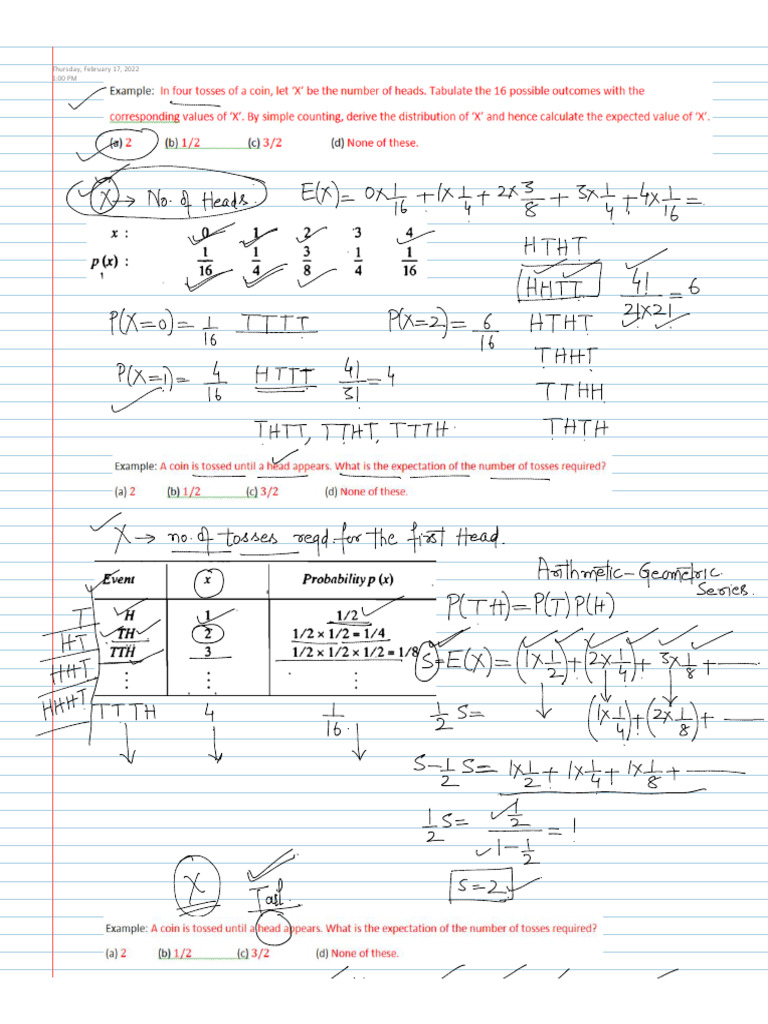 Thursday, February 17, 2022
1:00 PM
Example: In four tosses of a coin, let 'X' be the number of heads. Tabulate the 16 possible outcomes with the
corresponding values of 'X'. By simple counting, derive the distribution of 'X' and hence calculate the expected value of 'X'.
(a) 2 (b) 1/2 (c) 3/2 (d) None of these.
X → No. of Heads. E(X) = 0×1/16 + 1×1/4 + 2×3/8 + 3×1/4 + 4×1/16 =
x : 0 1 2 3 4
p(x) : 1/16 1/4 3/8 1/4 1/16
HTHT
HHTT 4!/2!×2! = 6
P(X=0) = 1/16 TTTT P(X=2) = 6/16 HTHT
THHT
P(X=1) = 4/16 HTTT 4!/3! = 4
TTHH
THTT, TTHT, TTTH. THTH
Example: A coin is tossed until a head appears. What is the expectation of the number of tosses required?
(a) 2 (b) 1/2 (c) 3/2 (d) None of these.
X → no. of tosses reqd. for the first Head.
Arithmetic-Geometric Series.
Event x Probability p (x)
P(TH) = P(T) P(H)
T H 1 1/2
HT TH 2 1/2 × 1/2 = 1/4
HHT TTH 3 1/2 × 1/2 × 1/2 = 1/8
S = E(X) = (1×1/2) + (2×1/4) + 3×1/8 + ----
⋮ ⋮ ⋮
HHHT TTTH 4 1/16
1/2 S = (1×1/4) + (2×1/8) + ----
S - 1/2 S = 1×1/2 + 1×1/4 + 1×1/8 + ----
1/2 S = 1/2 / 1 - 1/2 = 1
S = 2
X Tail.
Example: A coin is tossed until a head appears. What is the expectation of the number of tosses required?
(a) 2 (b) 1/2 (c) 3/2 (d) None of these.